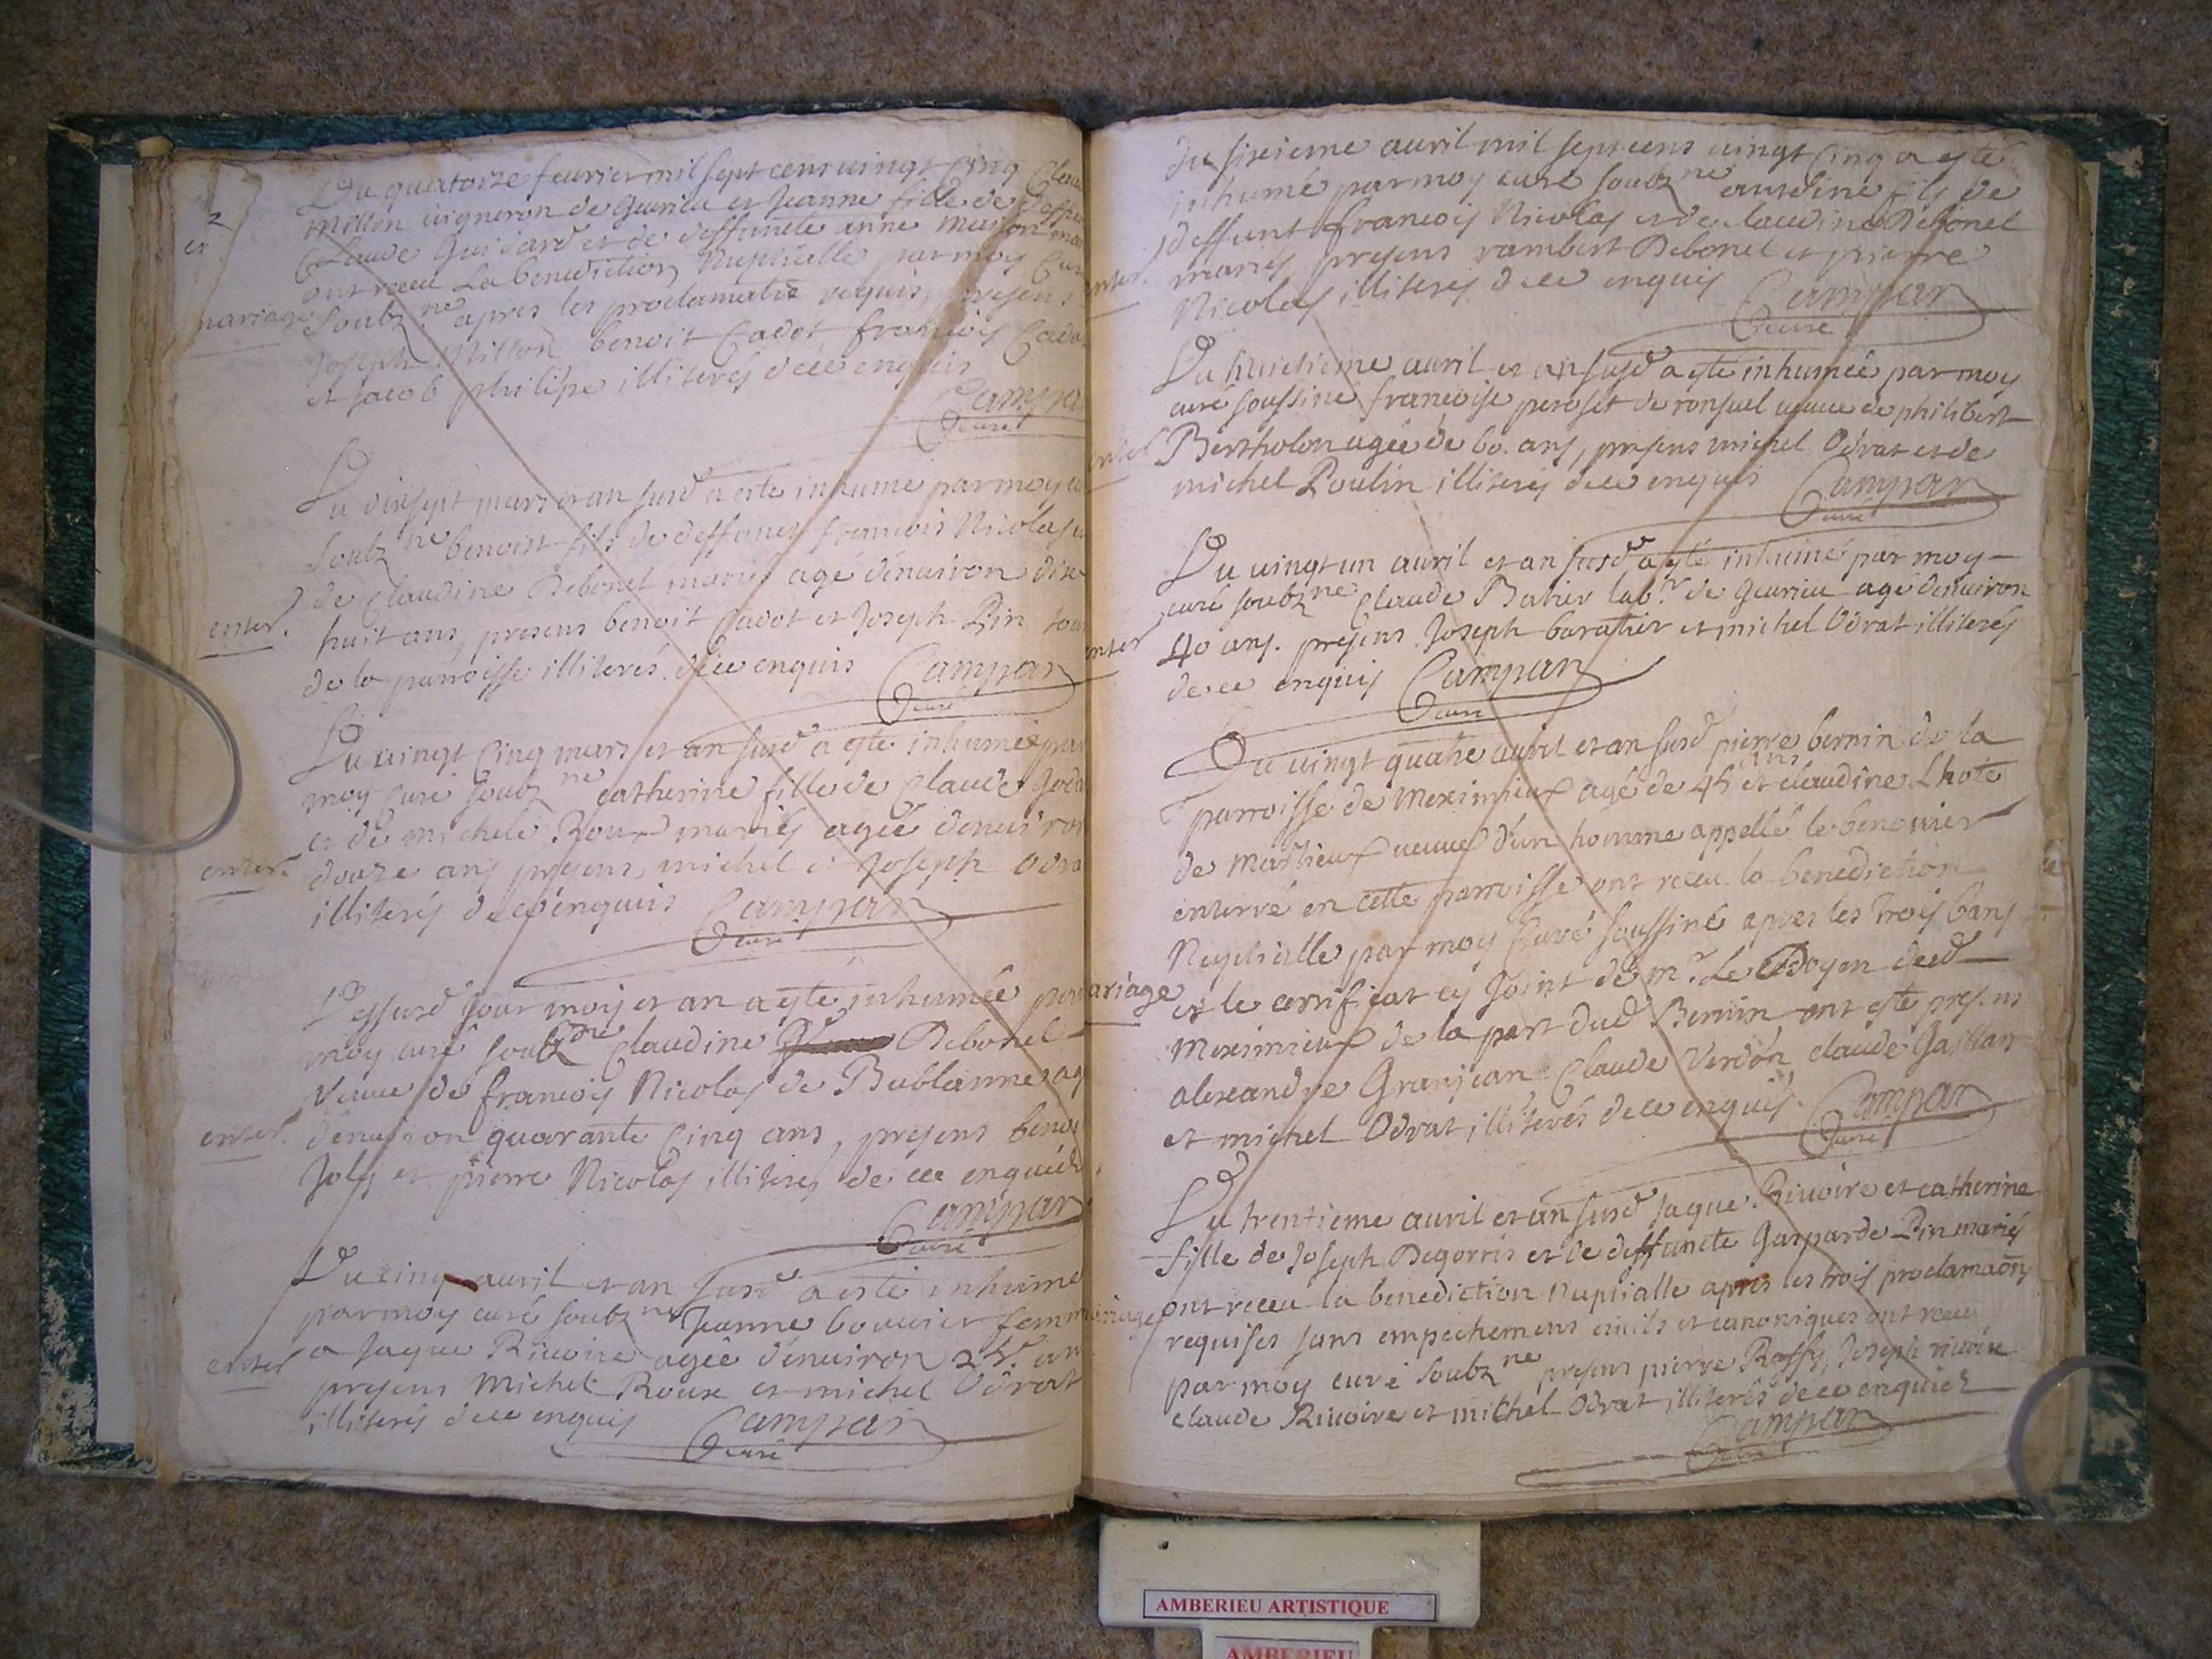 2
et
Du quatorze feurier mil sept cens uingt Cinq Claude
Millon uigneron de Geurieu et Jeanne fille de deffunt
Claude Guichard et de deffuncte anne maison mar
ont receu La benediction Nuptialle par moy Cur
mariage
Soubz.ne apres les proclamatio requis, presens
Joseph Millon benoit Cadot, francois Cado
et Jacob philipe illiterés dece enquis
Campa
Curé
Du dixsept mars et an susd a esté inhumé par moy cu
Soubz ne benoist fils de deffunct francois Nicolas e
de Claudine Debonel mariés agé denuiron dix
enter.
huit ans, presens benoit Cadot et Joseph Pin tou
de la parroisse illiterés dece enquis Campan
Curé
Du uingt Cinq mars et an susd a esté inhumée par
moy Curé soubz ne catherine fille de Claude God
et de michele Roux mariés agée denuiron
enter.
douze ans presens, michel et Joseph Odra
illiterés de ce enquis Campan
Curé
Lessusd Jour mois et an a esté inhumée par
moy curé soubz ne Claudine Debonel
Veuue de francois Nicolas de Bublanne ag
enter.
denuiron quarante Cinq ans, presens benoi
Joly et pierre Nicolas illiterés de ce enquis
Campan
Curé
Du cinq auril et an susd a esté inhumé
par moy curé soubz ne Jeanne bouuier femm
enter
a Jaque Riuoire agée denuiron 25. an
presens Michel Roux et michel Odrat
illiterés dece enquis Campan
Curé
du sixieme auril mil septcens uingt Cinq a esté
inhumé par moy curé soubz ne antoine fils de
deffunt francois Nicolas et de claudine Debonel
enter.
mariés presens rambert Debonel et pierre
Nicolas illiterés dece enquis Campan
Curé
Du huictieme auril et an susd a esté inhumée par moy
curé soussiné francoise peroset de ronsuel ueuue de philibert
enter
Bertholon agée de 60. ans, presens michel Odrat et de
michel Poulin illiterés dece enquis Campan
Curé
Du uingt un auril et an susd a esté inhumé par moy
curé soubz ne Claude Batier lab.r de Geurieu agé denuiron
enter
40 ans. presens Joseph baratier et michel Odrat illiterés
de ce enquis Campan
Curé
Du uingt quatre auril et an susd pierre bernin de la
parroisse de Meximieux agé de 45 ans et claudine Lhote
de ueuue d'un homme appellé le benonier
enterré en cette parroisse ont receu la benediction
Nuptialle par moy Curé soussiné apres les trois bans
mariage
et le certificat cy Joint de m.r Le doyen dud
Meximieux de la part dud Bernin, ont esté presens
alexandre Granjean Claude Verdon, claude Gaillar
et michel Odrat illiterés dece enquis. Campan
Curé
Du trentieme auril et an susd Jaque Riuoire et catherine
fille de Joseph Degorris et de deffuncte Gasparde Pin mariés
ont receu la benediction Nuptialle apres les trois proclamaõns
mariage
requises sans empechemens ciuils et canoniques ont receu
par moy curé soubz ne presens pierre Rossy, Joseph riuoire
claude Riuoire et michel Odrat illiterés dece enquis
Campan
Curé
AMBERIEU ARTISTIQUE
AMBERIEU